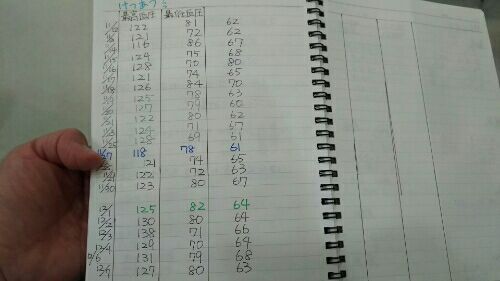 けつあつ
最高血圧 最低血圧
122 81 62
121 72 62
116 86 67
124 75 68
128 70 80
121 74 65
126 84 70
125 78 63
127 79 60
122 80 62
124 71 67
128 69 61
118 78 61
121 74 65
122 72 63
11/30 123 80 67
12/1 125 82 64
12/2 130 80 64
12/3 138 71 66
12/4 129 70 64
131 79 68
127 80 63